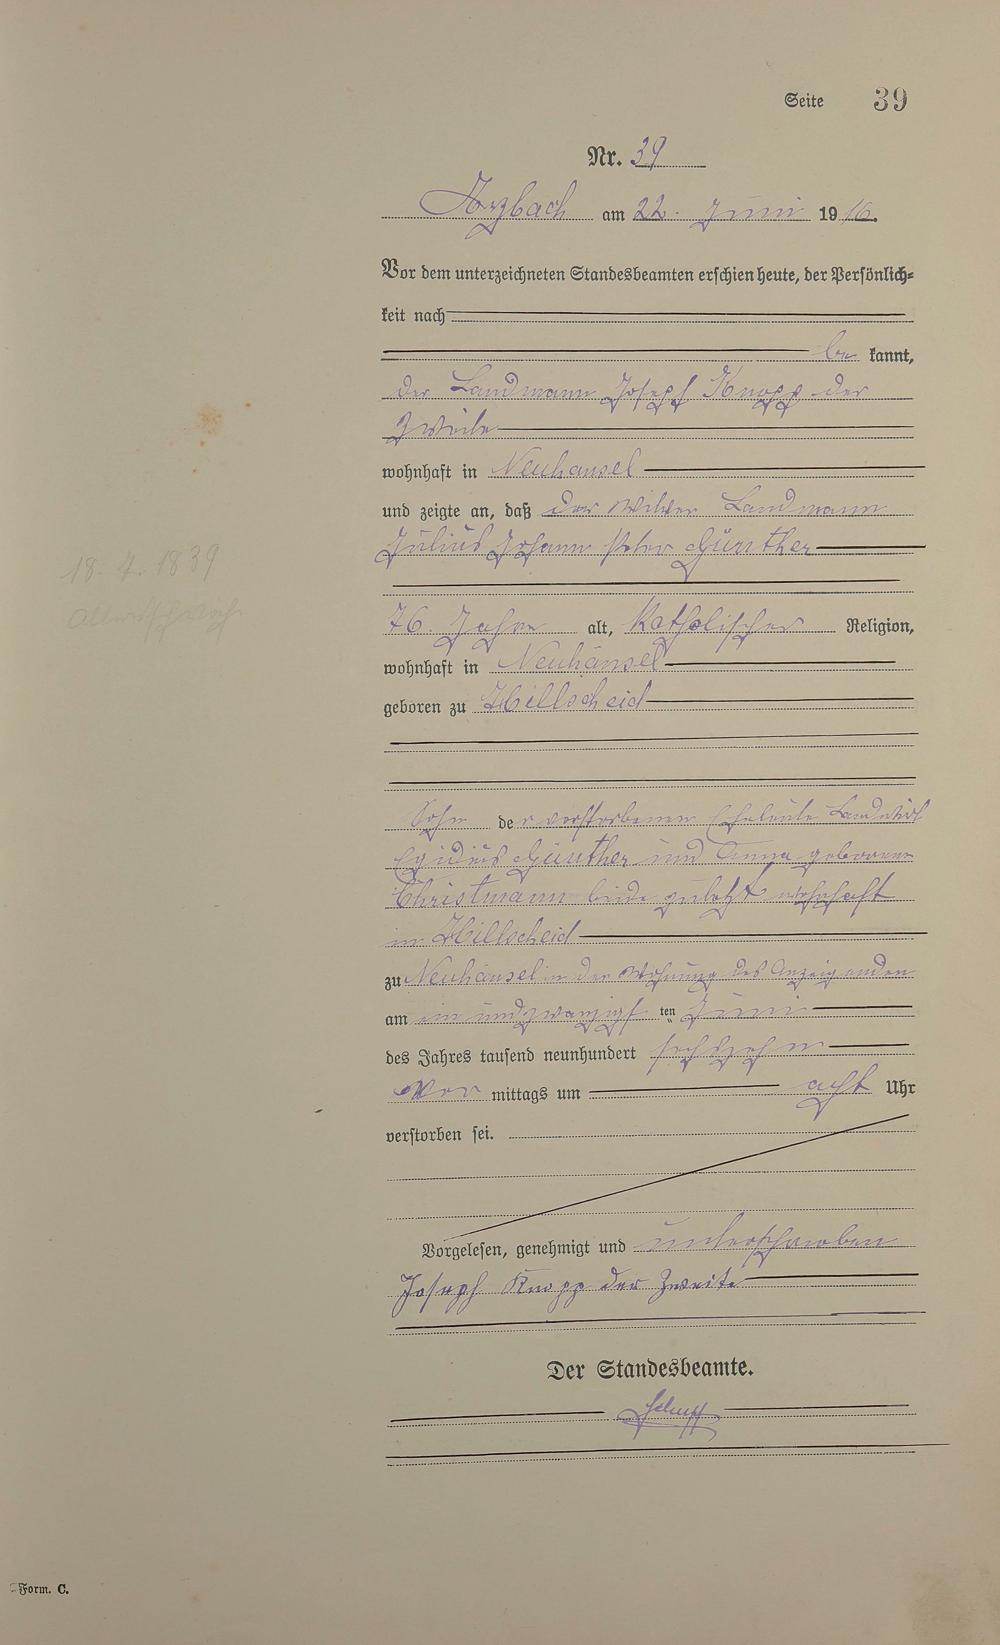 Seite 39
Nr. 39
Arzbach am 22. Juni 1916.
Vor dem unterzeichneten Standesbeamten erschien heute, der Persönlich-
keit nach
be kannt,
der Landmann Josef Knopp der
Zweite
wohnhaft in Neuhäusel
und zeigte an, daß der Witwer Landmann
Julius Johann Peter Günther
76 Jahre alt, Katholischer Religion,
wohnhaft in Neuhäusel
geboren zu Hillscheid
Sohn der verstorbenen Eheleute Landwirt
Egidius Günther und Anna geborene
Christmann beide zuletzt wohnhaft
in Hillscheid
zu Neuhäusel in der Wohnung des Anzeigenden
am ein und zwanzigsten Juni
des Jahres tausend neunhundert sechszehn
Vor mittags um acht Uhr
verstorben sei.
Vorgelesen, genehmigt und unterschrieben
Joseph Knopp der Zweite
Der Standesbeamte.
18. 7. 1839
Form. C.